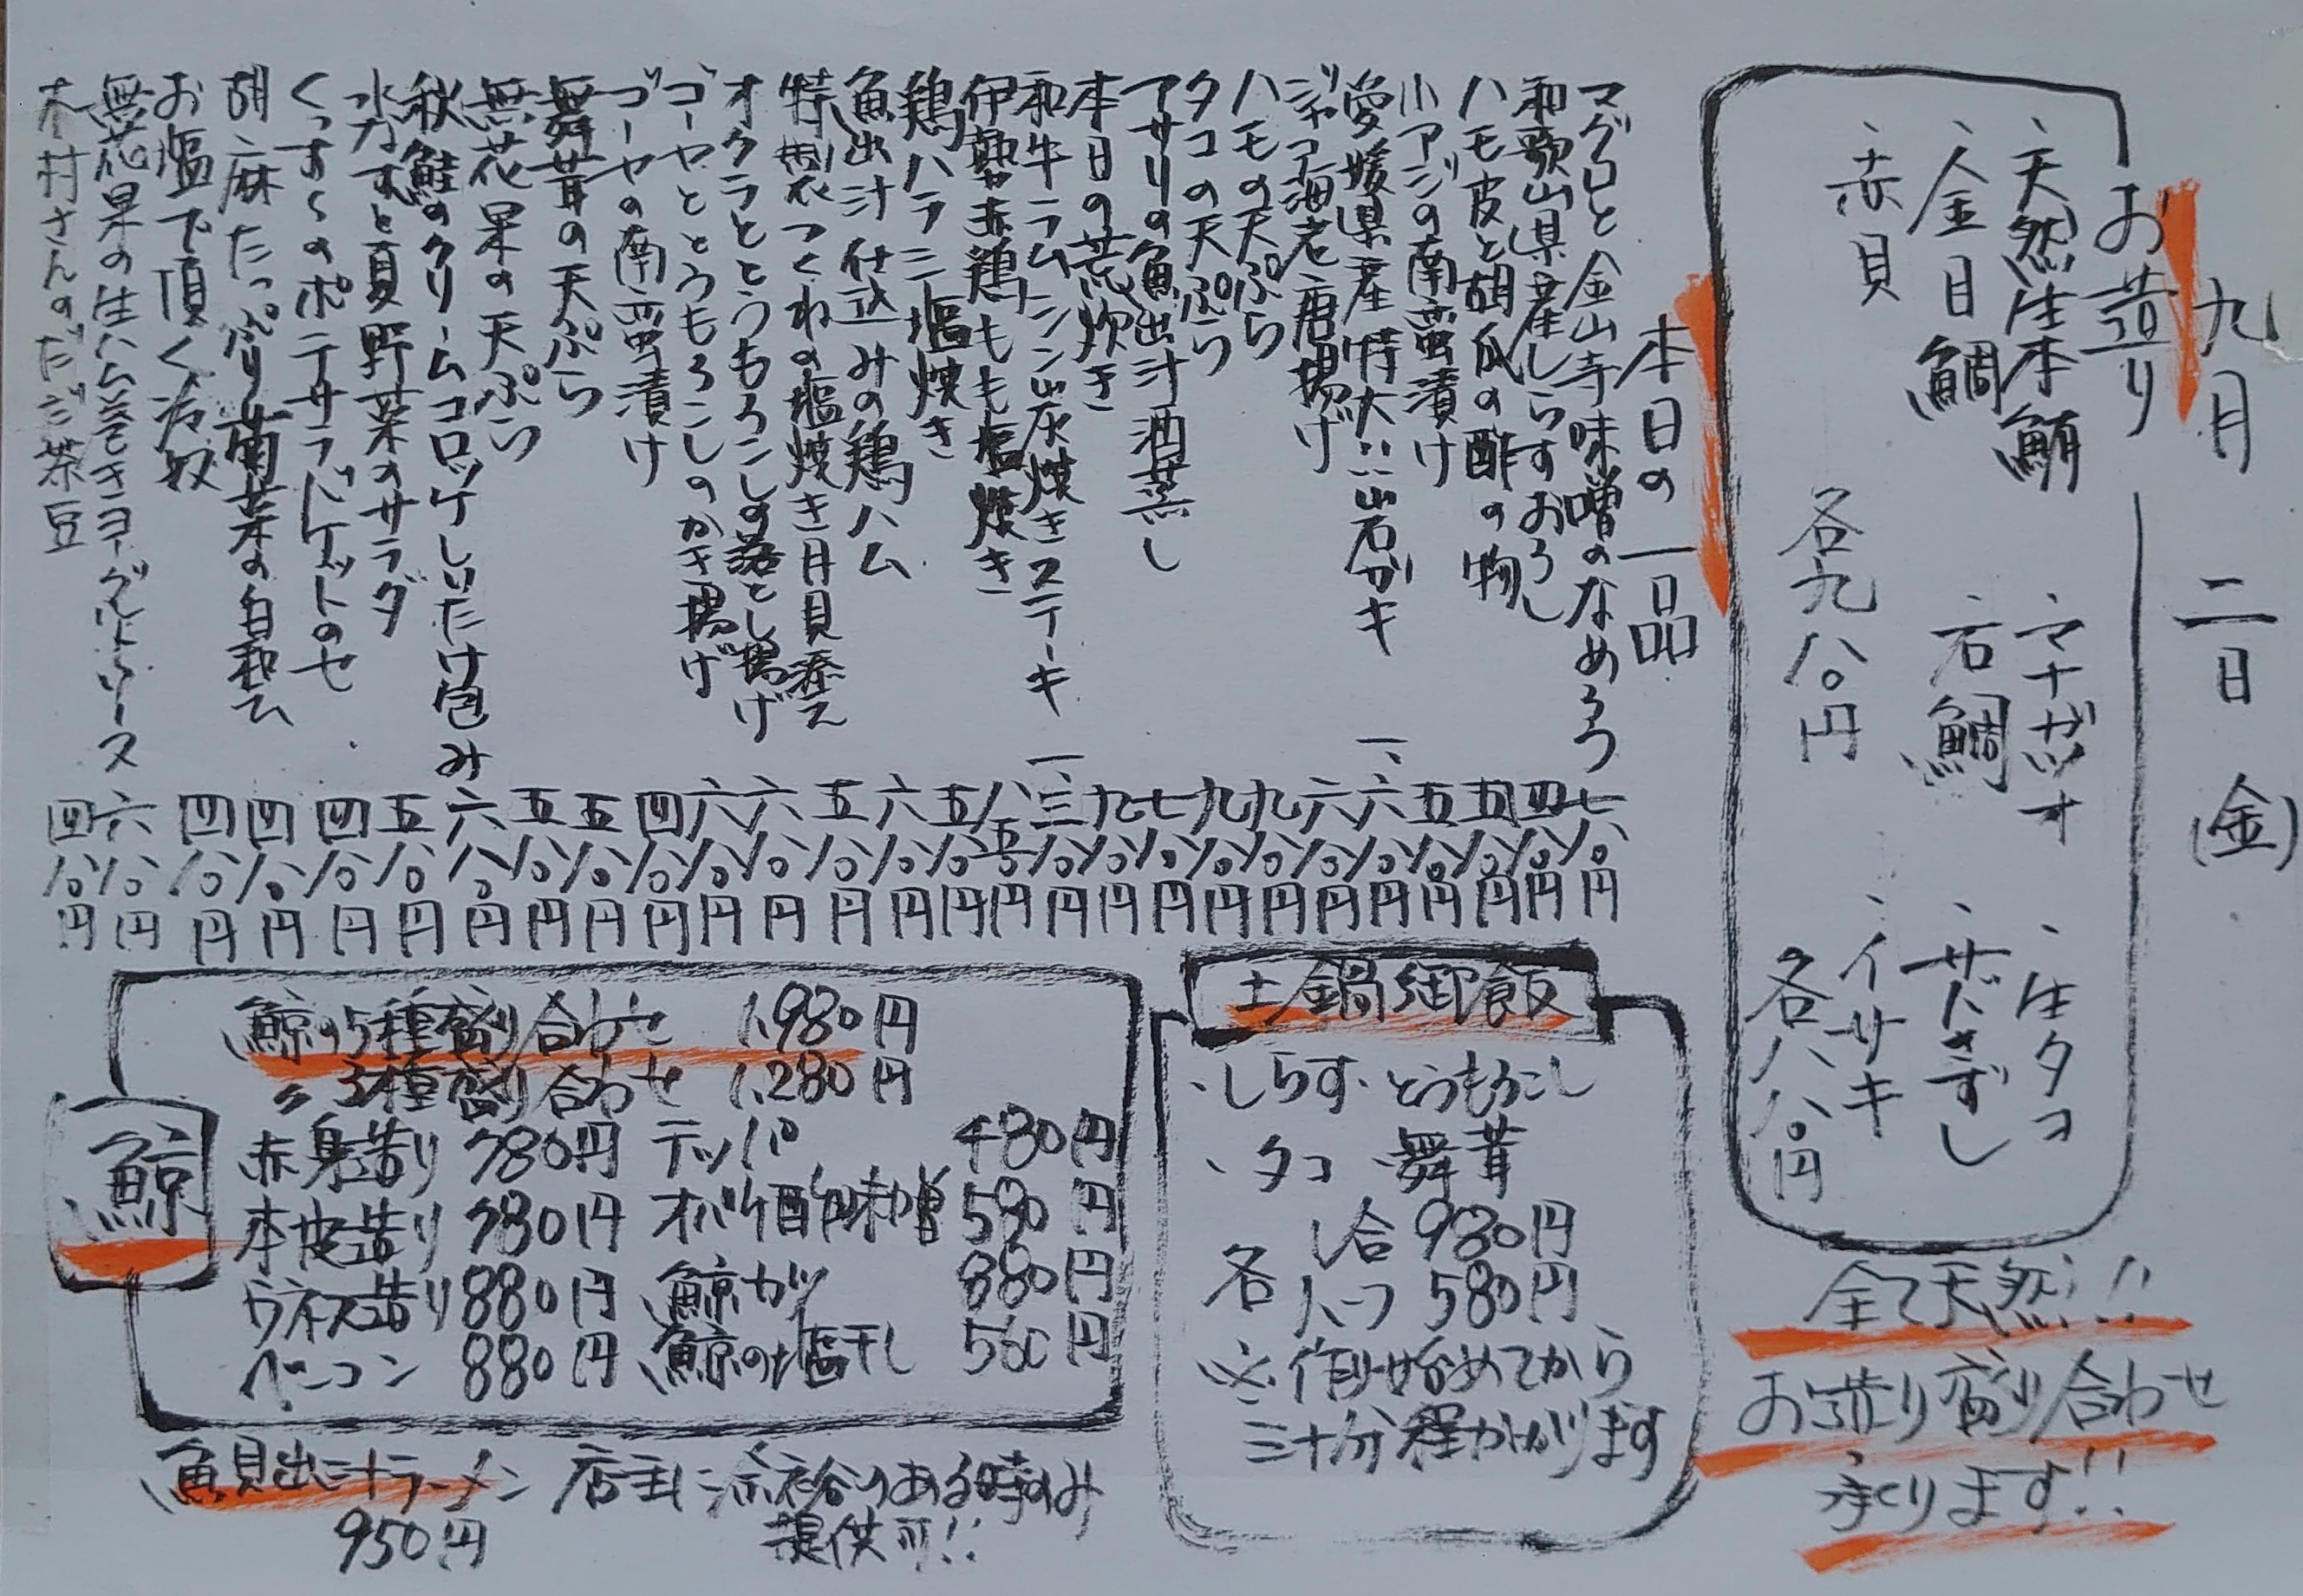 九月二日(金)
お造り
、天然生本鮪
、マナガツオ
、生タコ
、金目鯛
、石鯛
、サバきずし
、赤貝
、イサキ
各九八〇円
各八八〇円
全て天然!!
お造り盛り合わせ
承ります!!
本日の一品
マグロと金山寺味噌のなめろう 七八〇円
和歌山県産しらすおろし 四八〇円
ハモ皮と胡瓜の酢の物 五八〇円
小アジの南蛮漬け 五八〇円
愛媛県産特大!!岩ガキ 一、六八〇円
ジャコ海老唐揚げ 六八〇円
ハモの天ぷら 九八〇円
タコの天ぷら 九八〇円
アサリの魚出汁酒蒸し 七八〇円
本日の荒炊き 九八〇円
和牛ラムシン炭焼きステーキ 一、三八〇円
伊勢赤鶏もも塩焼き 八五〇円
鶏ハラミ塩焼き 五八〇円
魚出汁仕込みの鶏ハム 六八〇円
特製つくねの塩焼き月見添え 五八〇円
オクラととうもろこしの落とし揚げ 六八〇円
ゴーヤととうもろこしのかき揚げ 六八〇円
ゴーヤの南蛮漬け 四八〇円
舞茸の天ぷら 五八〇円
無花果の天ぷら 五八〇円
秋鮭のクリームコロッケしいたけ包み 六八〇円
水なすと夏野菜のサラダ 五八〇円
くつすくのポテサラバケットのせ 四八〇円
胡麻たっぷり菊菜の白和え 四八〇円
お塩で頂く冷奴 四八〇円
無花果の生ハム巻きヨーグルトソース 六八〇円
木村さんのだだ茶豆 四八〇円
土鍋御飯
、しらす、とうもろこし
、タコ、舞茸
各 一合 980円
ハーフ 580円
※作り始めてから
三十分程かかります
鯨
鯨の5種盛り合わせ 1,980円
〃 3種盛り合わせ 1,280円
赤身造り 780円 テッパ 480円
本皮造り 780円 オバケ酢味噌 580円
ウネス造り 880円 鯨カツ 880円
ベーコン 880円 鯨の塩干し 560円
魚貝出汁ラーメン 店主に余裕のある時のみ
950円 提供可!!